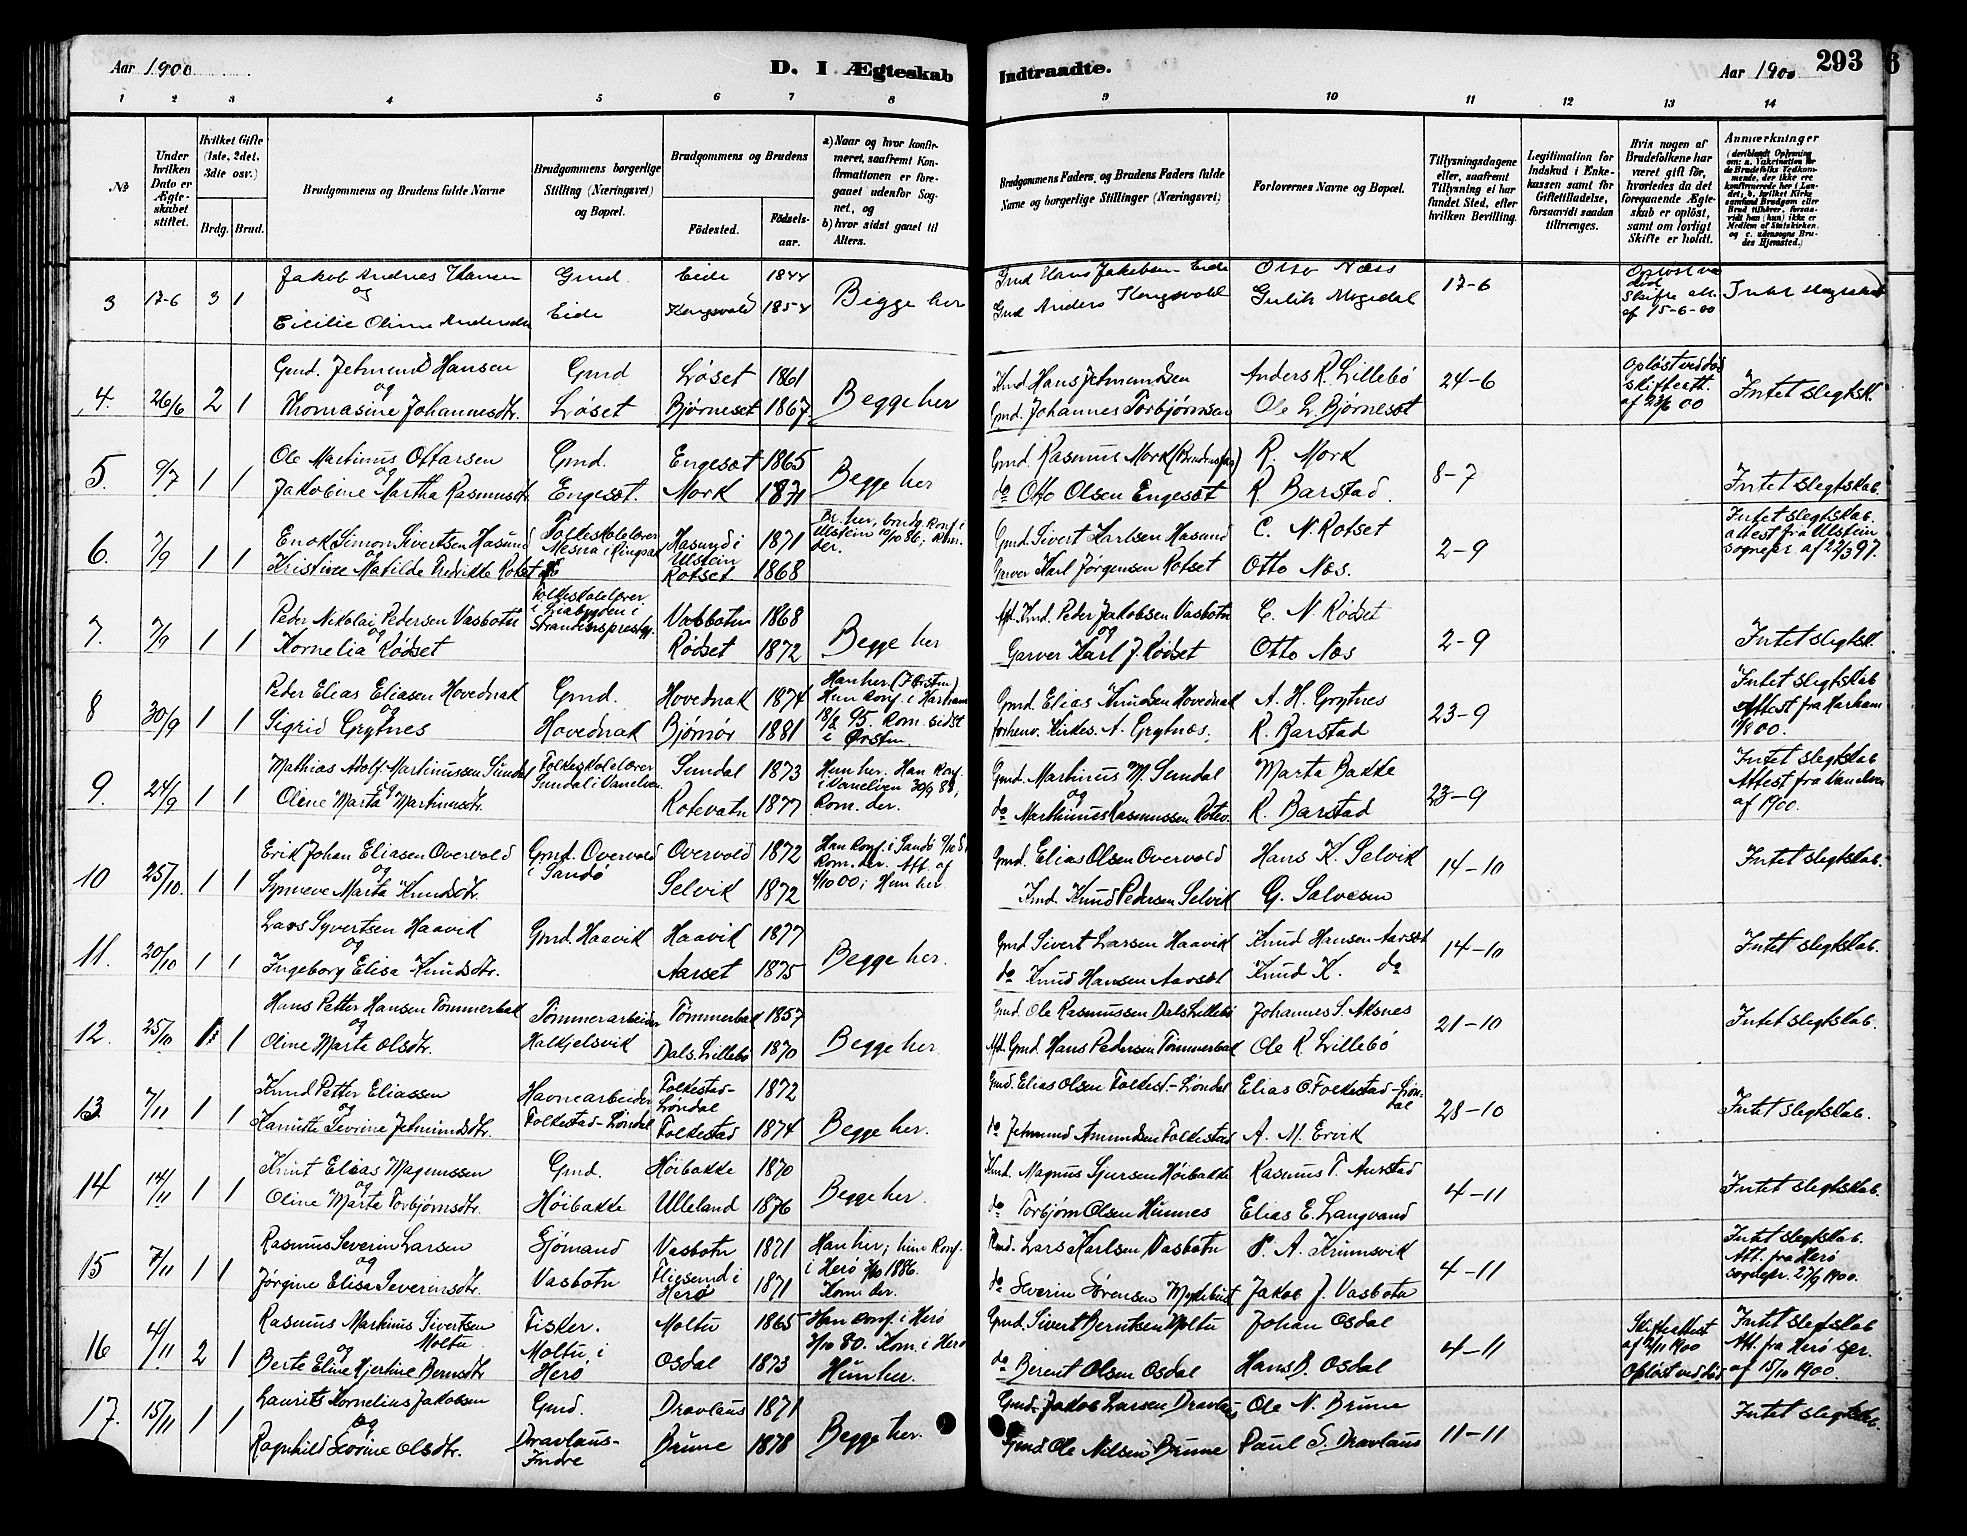 Aar 1900
D. I Ægteskab
Indtraadte.
Aar 1900
293
1 2 3 4 5 6 7 8 9 10 11 12 13 14
No
Under hvilken Dato er Ægteskabet stiftet.
Hvilket Gifte (1ste, 2det, 3die osv.)
Brdg. Brud.
Brudgommens og Brudens fulde Navne
Brudgommens borgerlige Stilling (Næringsvei) og Bopæl.
Brudgommens og Brudens
Födested.
Födselsaar.
a) Naar og hvor konfirmeret, saafremt Konfirmationen er foregaaet udenfor Sognet, og
b) hvor sidst gaaet til Alters.
Brudgommens Faders, og Brudens Faders fulde Navne og borgerlige Stillinger (Næringsvei)
Forlovernes Navne og Bopæl.
Tillysningsdagene eller, saafremt Tillysning ei har fundet Sted, efter hvilken Bevilling.
Legitimation for Indskud i Enkekassen samt for Giftetilladelse, forsaavidt saadan tiltrænges.
Hvis nogen af Brudefolkene har været gift før, hvorledes da det foregaaende Ægteskab er opløst, samt om lovligt Skifte er holdt.
Anmærkninger
3 17-6 3 1 Jakob Andreas Hansen Gmd. Eide 1844 Begge her Gmd Hans Jakobsen Eide Otto Næss 17-6
og
Eide 1854 Gmd Anders
af 15-6-00
4. 26/6 2 1 Gmd. Jetmund Hansen Gmd Løset 1861 Begge her Kmd Hans Jetmundsen Anders R. Lillebø 24-6 Opløst ved død Intet slegtsk.
og
Thomasine Johannesdtr. Løset Bjørneset 1867. Gmd. Johannes Torbjørnsen Ole L. Bjørneset skifteatt. af 23/6 00
5. 9/7 1 1 Ole Martinus Ottarsen Gmd. Engeset 1865 Begge her Gmd. Rasmus Mork R. Mork 8-7 Intet slegtskab.
og
Jakobine Martha Rasmusdtr. Engeset. Mork 1871 do Otto Olsen Engesæt R. Barstad.
6. 7/9 1 1 Enok Simon Sivertsen Hasund Folkeskolelærer Hasund i Ulstein 1871 Gmd. Sivert Karlsen Hasund C. N. Rotset 2-9 Intet slegtskab.
og
Kristine Matilde Fredrikke Rotset Rotset 1868 Garver Karl Jørgensen Rotset Otto Næs. attest fra Ulstein sognepr. af 22/3 97.
7. 7/9 1 1 Peder Nikolai Pedersen Vasbotn Folkeskolelærer i Liabygden i Vasbotn 1868 Begge her Peder Jakobsen Vasbotn C. N. Rødset 2-9 Intet slegtsk.
og
Kornelia Rødset Rødset 1872 Garver Karl J. Rødset Otto Næs
8 30/9 1 1 Peder Elias Eliasen Hovednak Gmd. Hovednak 1874 Gmd. Elias Knudsen Hovednak A. H. Grytnes 23-9 Intet slegtskab
og
Sigrid Grytnes Hovednak Bjørnør 1881 i Ørsten forhenv. Kirkes. A. Grytnæs. R. Barstad Attest fra Harham
9. 24/9 1 1 Mathias Adolf Martinussen Sundal Folkeskolelærer Sundal i Vanelven Sundal 1873 Hun her. Han konf. i Vanelven 30/9 88, Kom. der. Gmd. Martinus M. Sundal Marta Bakke 23-9 Intet slegtskab
Og
Oline Marta Martinusdtr. Rotevatn 1877 do Marthinus Rasmussen Rotev. R. Barstad Attest fra Vanelven af 1900.
10 25/10. 1 1 Erik Johan Eliasen Overvold Gmd. Overvold i Sandø Overvold 1872 Gmd. Elias Olsen Overvold Hans K. Selvik 14-10 Intet slegtskab.
og
Synneve Marta Knudsdtr. Selvik 1872 4/10 00; Hun her. Kmd. Knud Pedersen Selvik G. Salvesen
11. 20/10 1 1 Lars Syvertsen Haavik Gmd. Haavik Haavik 1877 Begge her. Gmd Sivert Larsen Haavik Knud Hansen Aarset 14-10 Intet slegtskab.
og
Ingeborg Elisa Knudsdtr. Aarset 1875 do Knud Hansen Aarset Knud K. do
12. 25/10 1 1 Hans Petter Hansen Tömmerbak Tömmerarbeider Tömmerbak 1857 Begge her. Gmd. Ole Rasmussen Dals Lillebø Johannes S. Aksnes 21-10 Intet slegtskab.
og
Oline Marta Olsdtr. Halkjelsvik Dals. Lillebø 1870 Aft. Gmd. Hans Pedersen Tømmerbak Ole R. Lillebø
13 7/11 1 1 Knud Petter Eliassen Havnearbeider Folkestad-Løndal 1872 Begge her. Gmd. Elias Olsen Folkest.-Løndal Elias O. Folkestad-Løndal 28-10 Intet slegtskab.
og
Sevrine Jetmundsdtr. Folkestad-Løndal Folkestad 1874 do Jetmund Amundsen Folkestad A. M. Ervik
14 14/11 1 1 Knut Elias Magnussen Gmd. Höibakke 1870 Begge her. Kmd. Magnus Sjursen Höibakke Rasmus T. Aurstad 4-11 Intet slegtskab.
og
Oline Marta Torbjørnsdtr. Höibakke Ulleland 1876 do Torbjørn Olsen Hunnes Elias E. Langvand
15 7/11 1 1 Rasmus Severin Larsen Sjömand Vasbotn 1871 Han her; hun konf. i Herø 3/10 1886. Kom. der. Kmd. Lars Karlsen Vasbotn P. A. Krumsvik 4-11 Intet slegtskab.
og
Jørgine Elisa Severinsdtr. Vasbotn Flıesund i Herø 1871 do Severin Sørensen Myklebust Jakob J. Vasbotn Att. fra Herø sognepr. 27/9 1900.
16 4/11 2 1 Rasmus Martinus Sivertsen Moltu Fisker. Moltu 1865 Han konf. i Herø 3/10 80. Kom. i Herø Gmd. Sivert Berntsen Moltu Johan Osdal 4-11 Skifteattest af 2/11 1900 Intet slegtskab
og
Berte Eline Hjertine Berntsdtr. Moltu i Herø Osdal 1873 Hun her. do Berent Olsen Osdal Hans B. Osdal Opløst ved død Att. fra Herø spr. af 15/10 1900.
17. 15/11 1 1 Laurits Kornelius Jakobsen Gmd. Dravlaus 1871 Begge her. Gmd. Jakob Larsen Dravlaus Ole N. Brune 11-11 Intet slegtskab.
og
Ragnhild Sevrine Olsdtr. Dravlaus-Indre Brune 1878 Gmd. Ole Nilsen Brune Paul S. Dravlaus